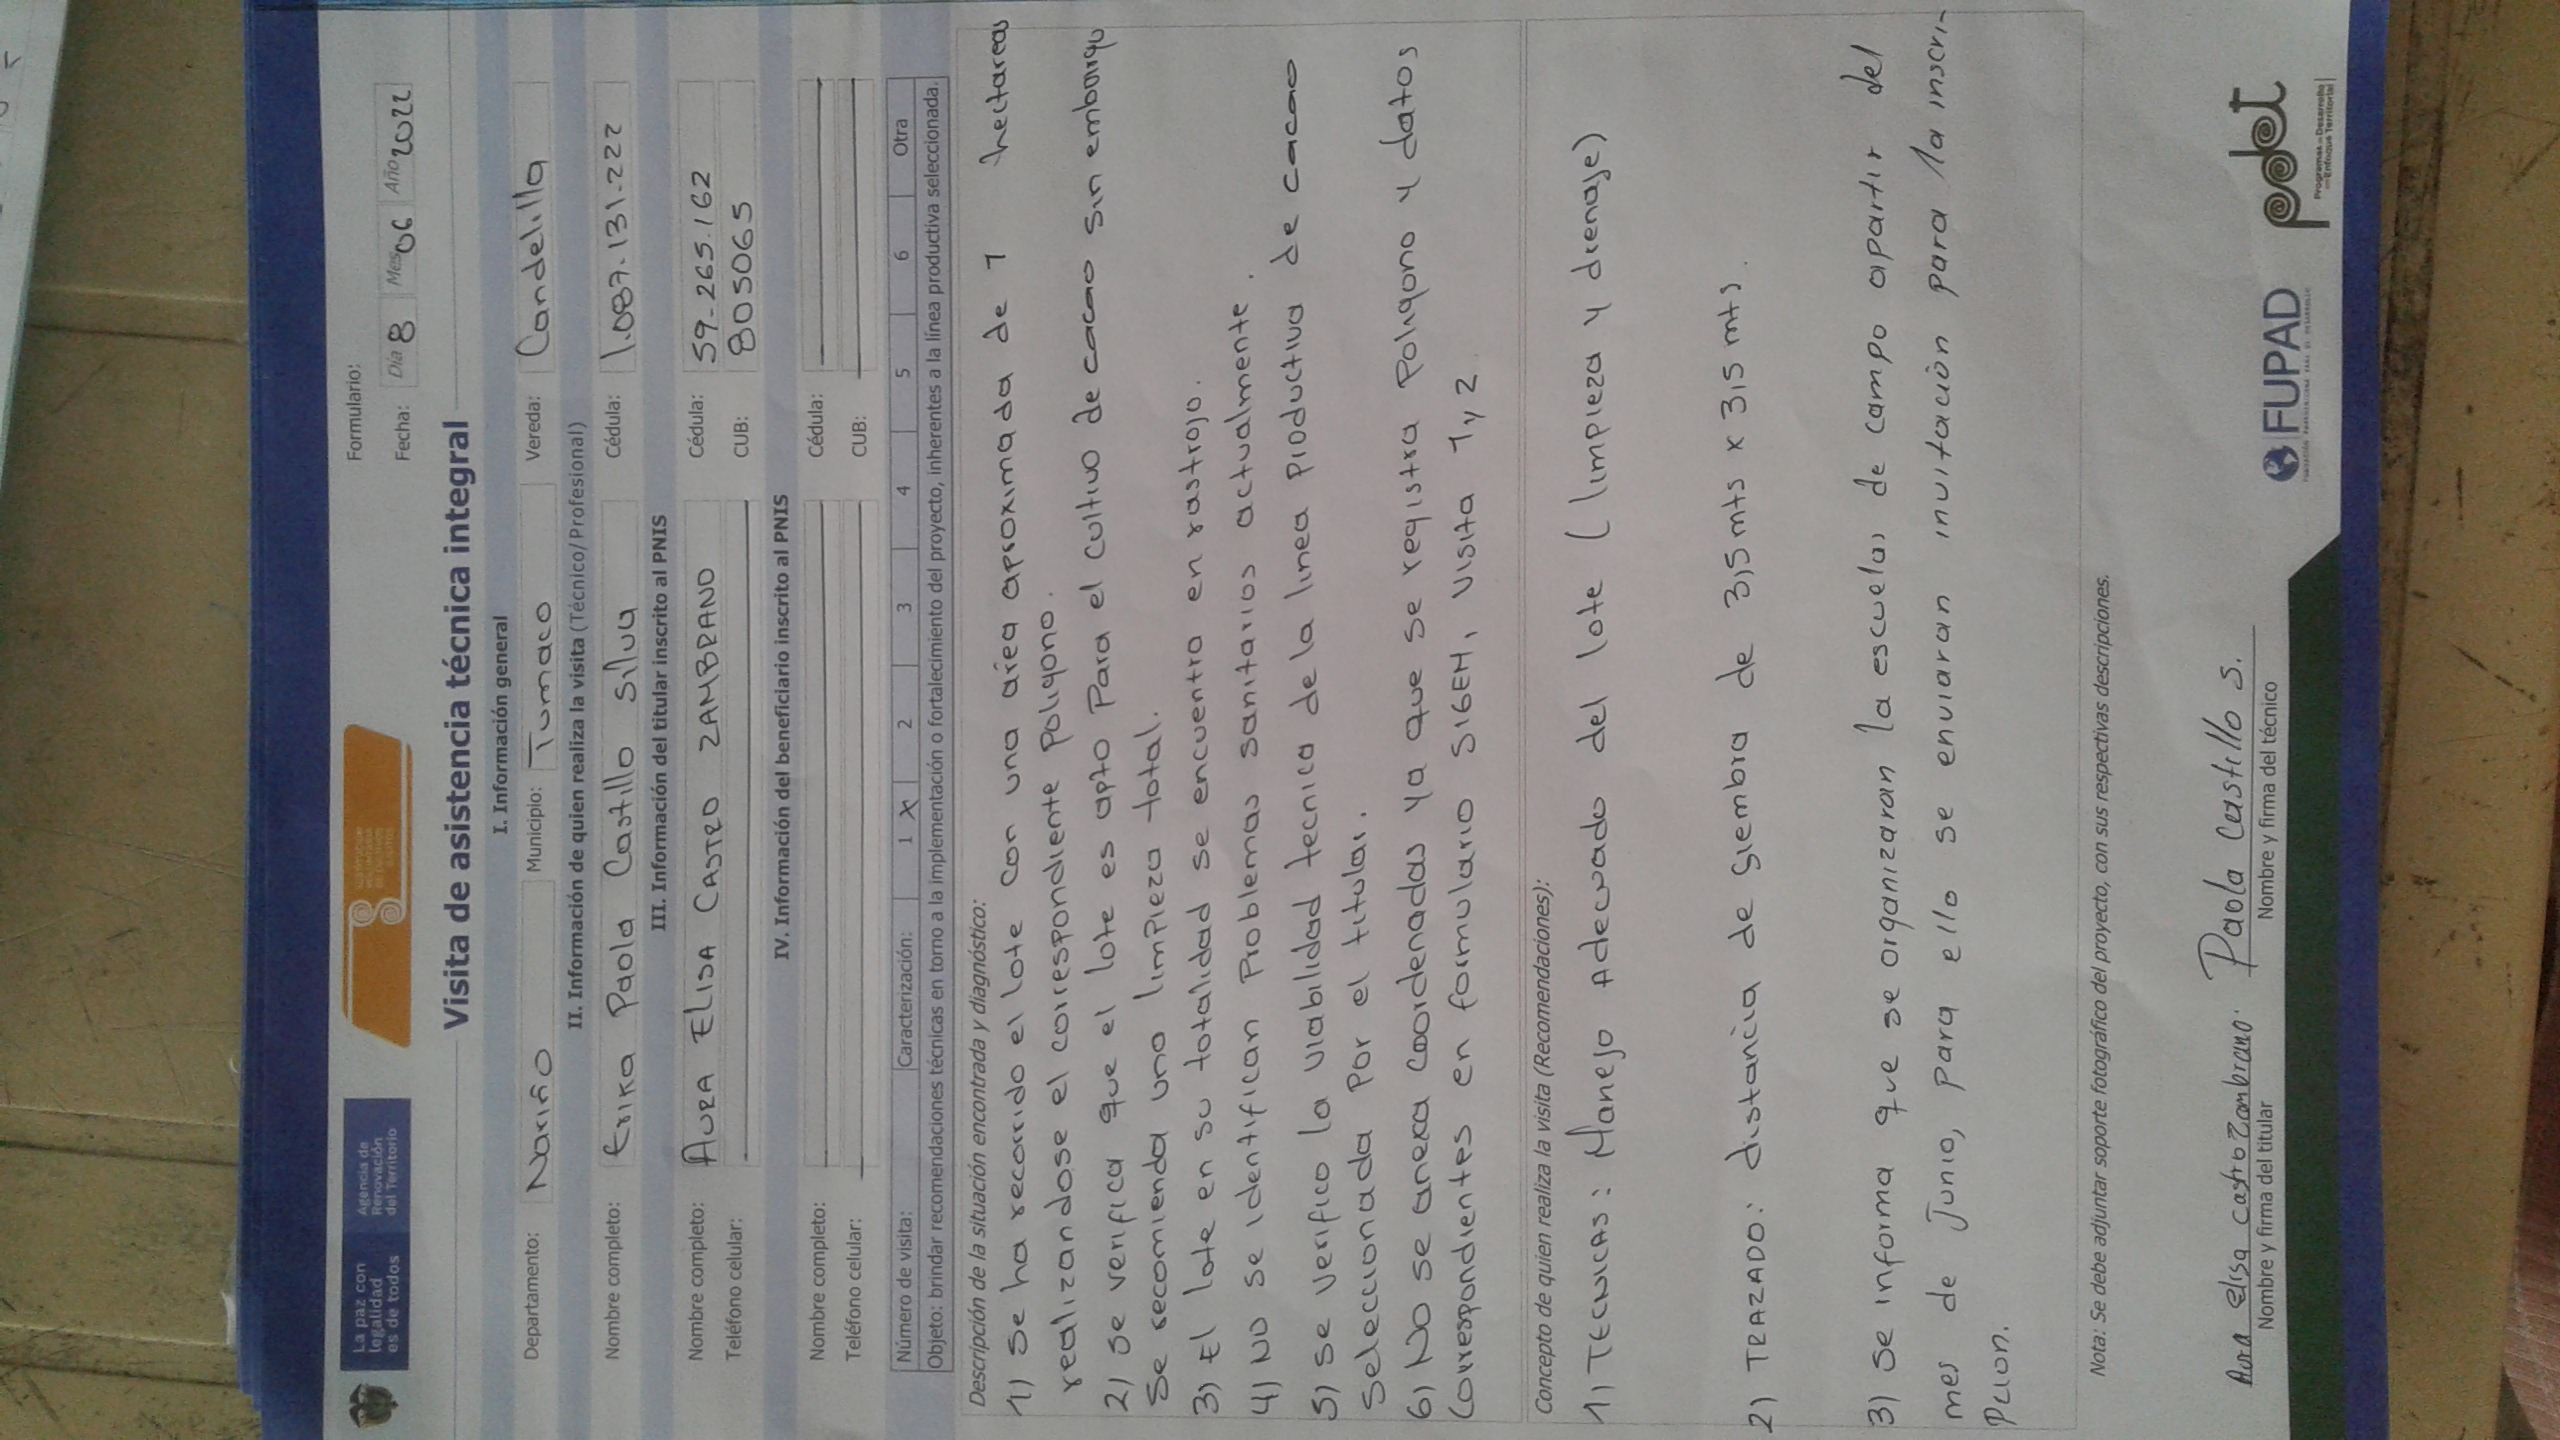 La paz con
legalidad
es de todos
Agencia de
Renovación
del Territorio
Formulario:
Fecha: Día 8 Mes 06 Año 2022
Visita de asistencia técnica integral
I. Información general
Departamento: Nariño Municipio: Tumaco Vereda: Candelilla
II. Información de quien realiza la visita (Técnico/Profesional)
Nombre completo: Erika Paola Castillo Silva Cédula: 1.087.131.222
III. Información del titular inscrito al PNIS
Nombre completo: AURA ELISA CASTRO ZAMBRANO Cédula: 59.265.162
Teléfono celular: CUB: 805065
IV. Información del beneficiario inscrito al PNIS
Nombre completo: Cédula:
Teléfono celular: CUB:
Número de visita: Caracterización: 1 X 2 3 4 5 6 Otra
Objeto: brindar recomendaciones técnicas en torno a la implementación o fortalecimiento del proyecto, inherentes a la línea productiva seleccionada.
Descripción de la situación encontrada y diagnóstico:
1) Se ha recorrido el lote con una área aproximada de 1 hectareas
realizandose el correspondiente poligono.
2) se verifica que el lote es apto para el cultivo de cacao sin embargo
Se recomienda una limpieza total.
3) El lote en su totalidad se encuentra en rastrojo.
4) NO se identifican problemas sanitarios actualmente.
5) se verifico la viabilidad tecnica de la linea productiva de cacao
Seleccionada por el titular.
6) NO se anexa coordenadas ya que se registra poligono y datos
Correspondientes en formulario SIGEH, visita 1 y 2.
Concepto de quien realiza la visita (Recomendaciones):
1) TECNICAS: Manejo Adecuado del lote (limpieza y drenaje)
2) TRAZADO: distancia de siembra de 3,5 mts x 3,5 mts.
3) Se informa que se organizaran la escuelas de campo apartir del
mes de Junio, para ello se enviaran invitación para la inscri-
pcion.
Nota: Se debe adjuntar soporte fotográfico del proyecto, con sus respectivas descripciones.
Aura Elisa Castro Zambrano. Paola Castillo S.
Nombre y firma del titular Nombre y firma del técnico
FUPAD
pdet
Programas de Desarrollo
con Enfoque Territorial